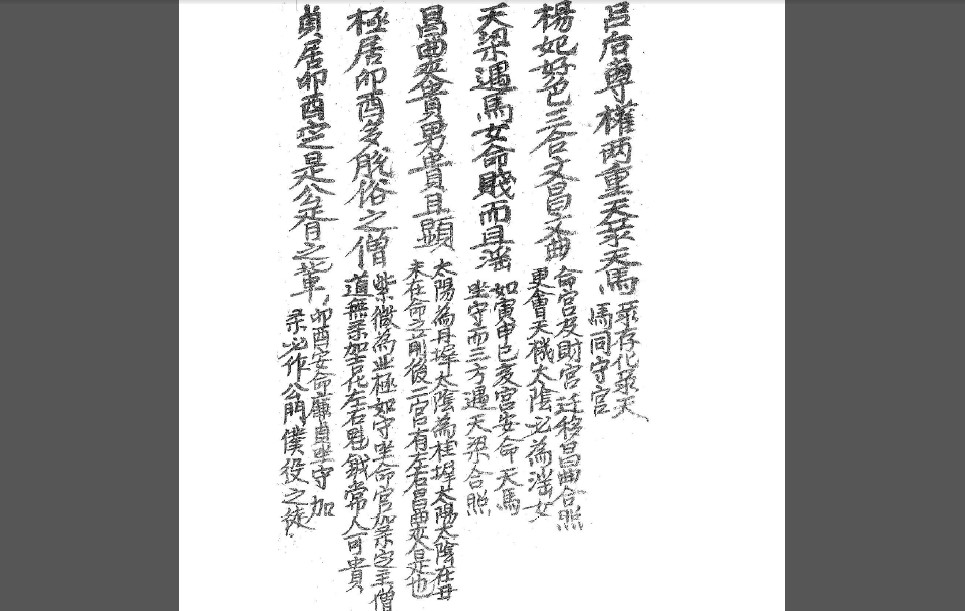 呂后專權两重天彔天馬
彔存化彔天
馬同守宮
楊妃好色三合文昌文曲
命宮及財宮迁移昌曲合照
更會天機太陰必為滛女
天梁遇馬女命賤而且滛
如寅申巳亥宮安命天馬
坐守而三方遇天梁合照
昌曲夾貴男貴且顯
太陽為丹墀太陰為桂墀太陽太陰在丑
未在命立前後二宮有左右昌曲夾合是也
極居卯酉多脫俗之僧
紫微為北極如守坐命宮加杀定主僧
道無杀加吉化左右魁鉞常人可貴
貞居卯酉定是公胥之輩
卯酉安命廉貞坐守加
杀必作公門僕役之徒